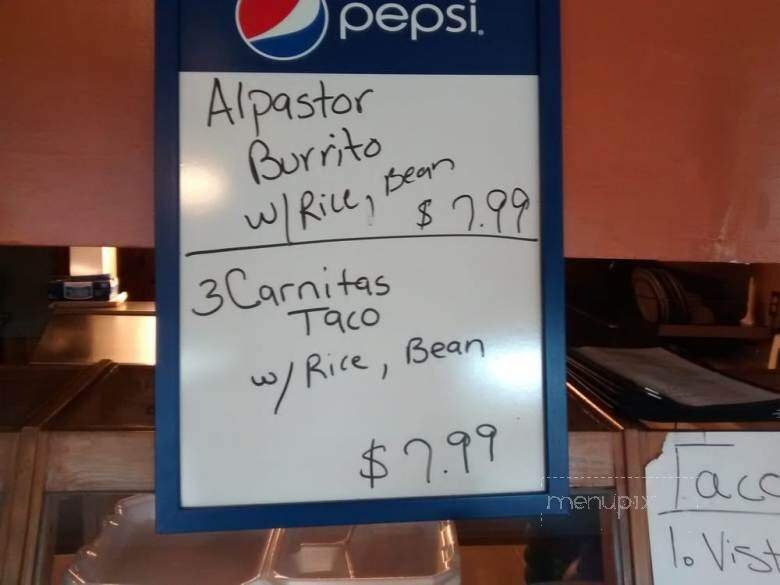 pepsi
Alpastor
Burrito
w/ Rice, Bean
$ 7.99
3 Carnitas
Taco
w/ Rice, Bean
$ 7.99
menupix
Taco
1. Vist